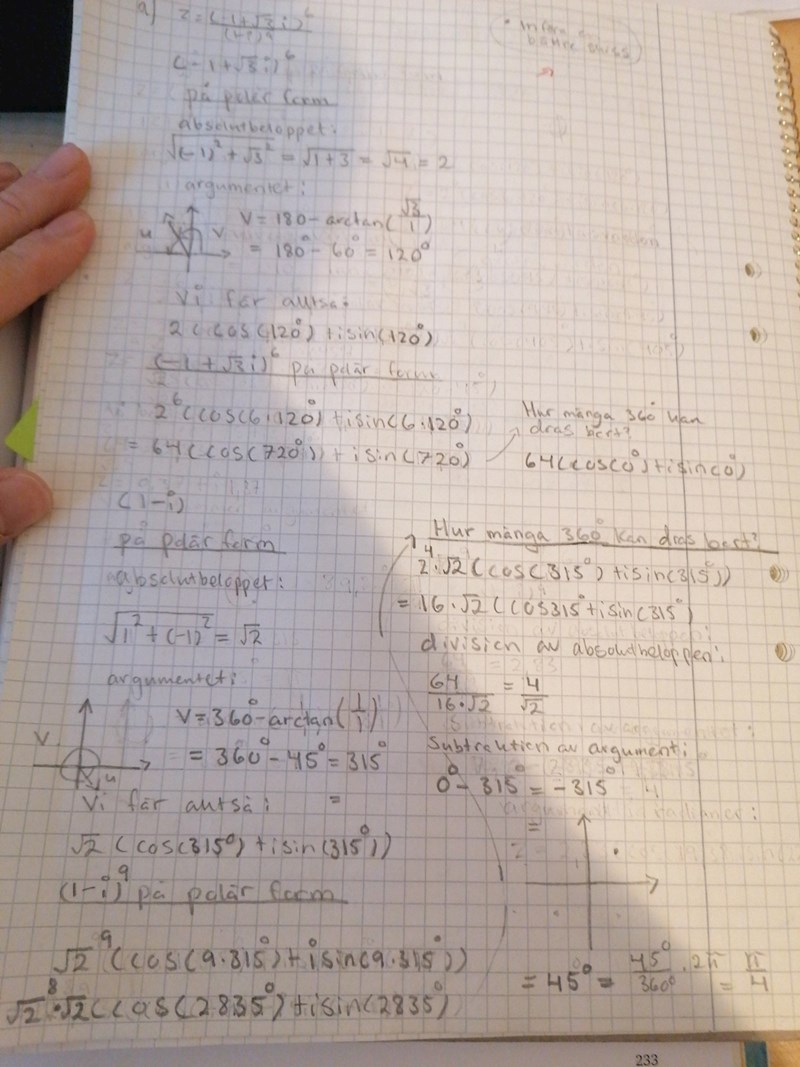 a) z = (-1+√3i)⁶
(1-i)⁹
(-1+√3i)⁶
på polär form
absolutbeloppet:
√((-1)²+√3²) = √(1+3) = √4 = 2
argumentet:
u v
V = 180 - arctan(√3/1)
= 180° - 60° = 120°
Vi får alltså:
2(cos(120°)+isin(120°)
(-1+√3i)⁶ på polär form
2⁶(cos(6·120°)+isin(6·120°)
= 64(cos(720°))+isin(720°)
Hur många 360° kan
dras bort?
64(cos(0°)+isin(0°)
(1-i)
på polär form
absolutbeloppet:
√(1²+(-1)²) = √2
argumentet:
V u
V = 360° - arctan(1/1)
= 360° - 45° = 315°
Vi får alltså: =
√2(cos(315°)+isin(315°))
(1-i)⁹ på polär form
√2⁹(cos(9·315°)+isin(9·315°))
√2⁸·√2(cos(2835°)+isin(2835°)
Hur många 360° kan dras bort?
2⁴·√2(cos(315°)+isin(315°))
= 16·√2(cos315°+isin(315°)
division av absolutbeloppen:
64/(16·√2) = 4/√2
Subtraktion av argument:
0° - 315° = -315°
=
= 45° = 45°/360° · 2π = π/4
233